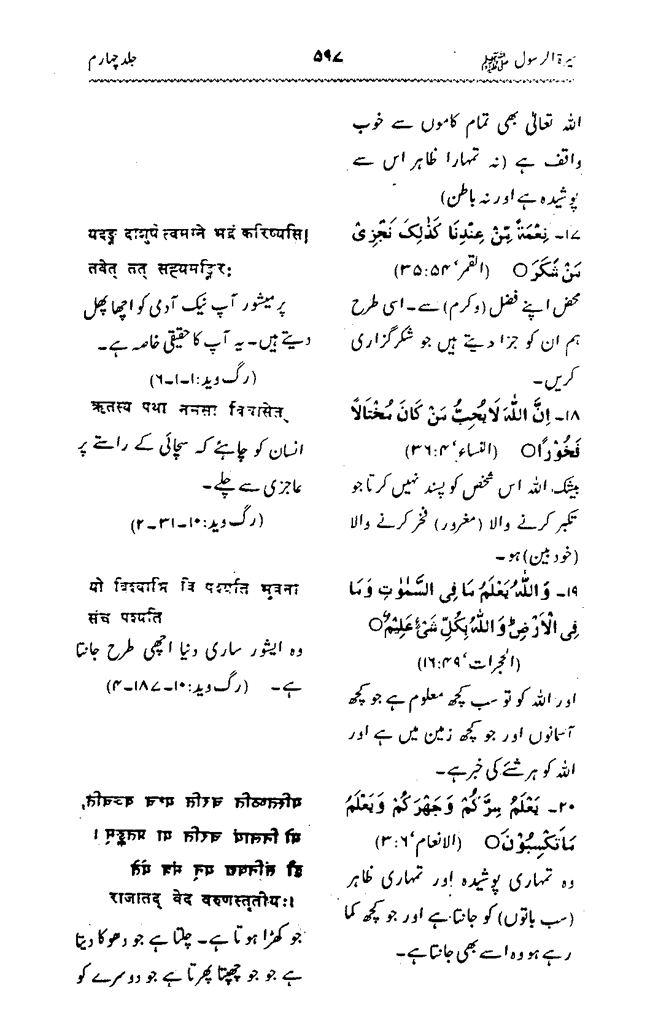 سیرۃ الرسول ﷺ ۵۹۷ جلد چہارم
اللہ تعالیٰ بھی تمام کاموں سے خوب
واقف ہے (نہ تمہارا ظاہر اس سے
پوشیدہ ہے اور نہ باطن)
۱۷۔ نِعْمَةً مِّنْ عِنْدِنَا كَذٰلِكَ نَجْزِیْ
مَنْ شَكَرَ○ (القمر‘ ۳۵:۵۴)
محض اپنے فضل (و کرم) سے۔ اسی طرح
ہم ان کو جزا دیتے ہیں جو شکرگزاری
کریں۔
۱۸۔ اِنَّ اللّٰهَ لَا یُحِبُّ مَنْ كَانَ مُخْتَالًا
فَخُوْرًا○ (النساء‘ ۳۶:۴)
بیشک اللہ اس شخص کو پسند نہیں کرتا جو
تکبر کرنے والا (مغرور) فخر کرنے والا
(خود بین) ہو۔
۱۹۔ وَاللّٰهُ یَعْلَمُ مَا فِی السَّمٰوٰتِ وَمَا
فِی الْاَرْضِ وَاللّٰهُ بِكُلِّ شَیْءٍ عَلِیْمٌ○
(الحجرات‘ ۱۶:۴۹)
اور اللہ کو تو سب کچھ معلوم ہے جو کچھ
آسمانوں اور جو کچھ زمین میں ہے اور
اللہ کو ہر شئے کی خبر ہے۔
۲۰۔ یَعْلَمُ سِرَّكُمْ وَجَهْرَكُمْ وَیَعْلَمُ
مَا تَكْسِبُوْنَ○ (الانعام‘ ۳:۶)
وہ تمہاری پوشیدہ اور تمہاری ظاہر
(سب باتوں) کو جانتا ہے اور جو کچھ کما
رہے ہو وہ اسے بھی جانتا ہے۔
यदङ्ग दाशुषे त्वमग्ने भद्रं करिष्यसि।
तवेत् तत्
پرمیشور آپ نیک آدمی کو اچھا پھل
دیتے ہیں۔ یہ آپ کا حقیقی خاصہ ہے۔
(رگ وید: ۱۔۱۔۶)
ऋतस्य पथा नमसा विवासेत्
انسان کو چاہئے کہ سچائی کے راستے پر
عاجزی سے چلے۔
(رگ وید: ۱۰۔۳۱۔۲)
यो विश्वाभि वि पश्यति भुवना
संच पश्यति
وہ ایشور ساری دنیا اچھی طرح جانتا
ہے۔ (رگ وید: ۱۰۔۱۸۷۔۴)
राजातद् वेद वरुणस्तृतीयः।
جو کھڑا ہوتا ہے۔ چلتا ہے جو دھوکا دیتا
ہے جو جو چھپتا پھرتا ہے جو دوسرے کو